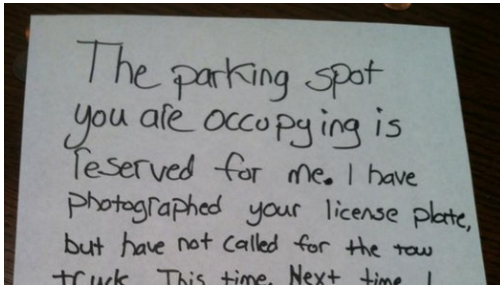 The parking spot
you are occupying is
reserved for me. I have
photographed your license plate,
but have not called for the tow
truck. This time. Next time I